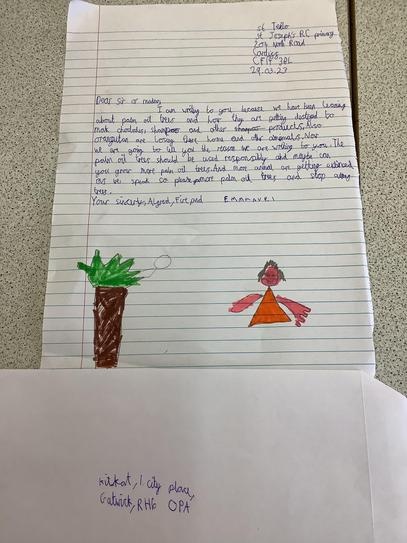 st Teilo
st Joseph's RC primary
North Road
Cardiff
CF14 3BL
29.03.23
Dear Sir or madam,
I am writing to you because we have been learning
about palm oil trees and how they are getting
mak and other products. Also
orangutan are losing there home and the Now
we are going to tell you the reason we are writing to you. The
palm oil trees should be used responsibly and maybe can
you grow more palm oil trees. And more animal are getting
we speak so please more palm oil trees and stop
trees.
Your
Kitkat, 1 city place,
Gatwick, RH6 OPA